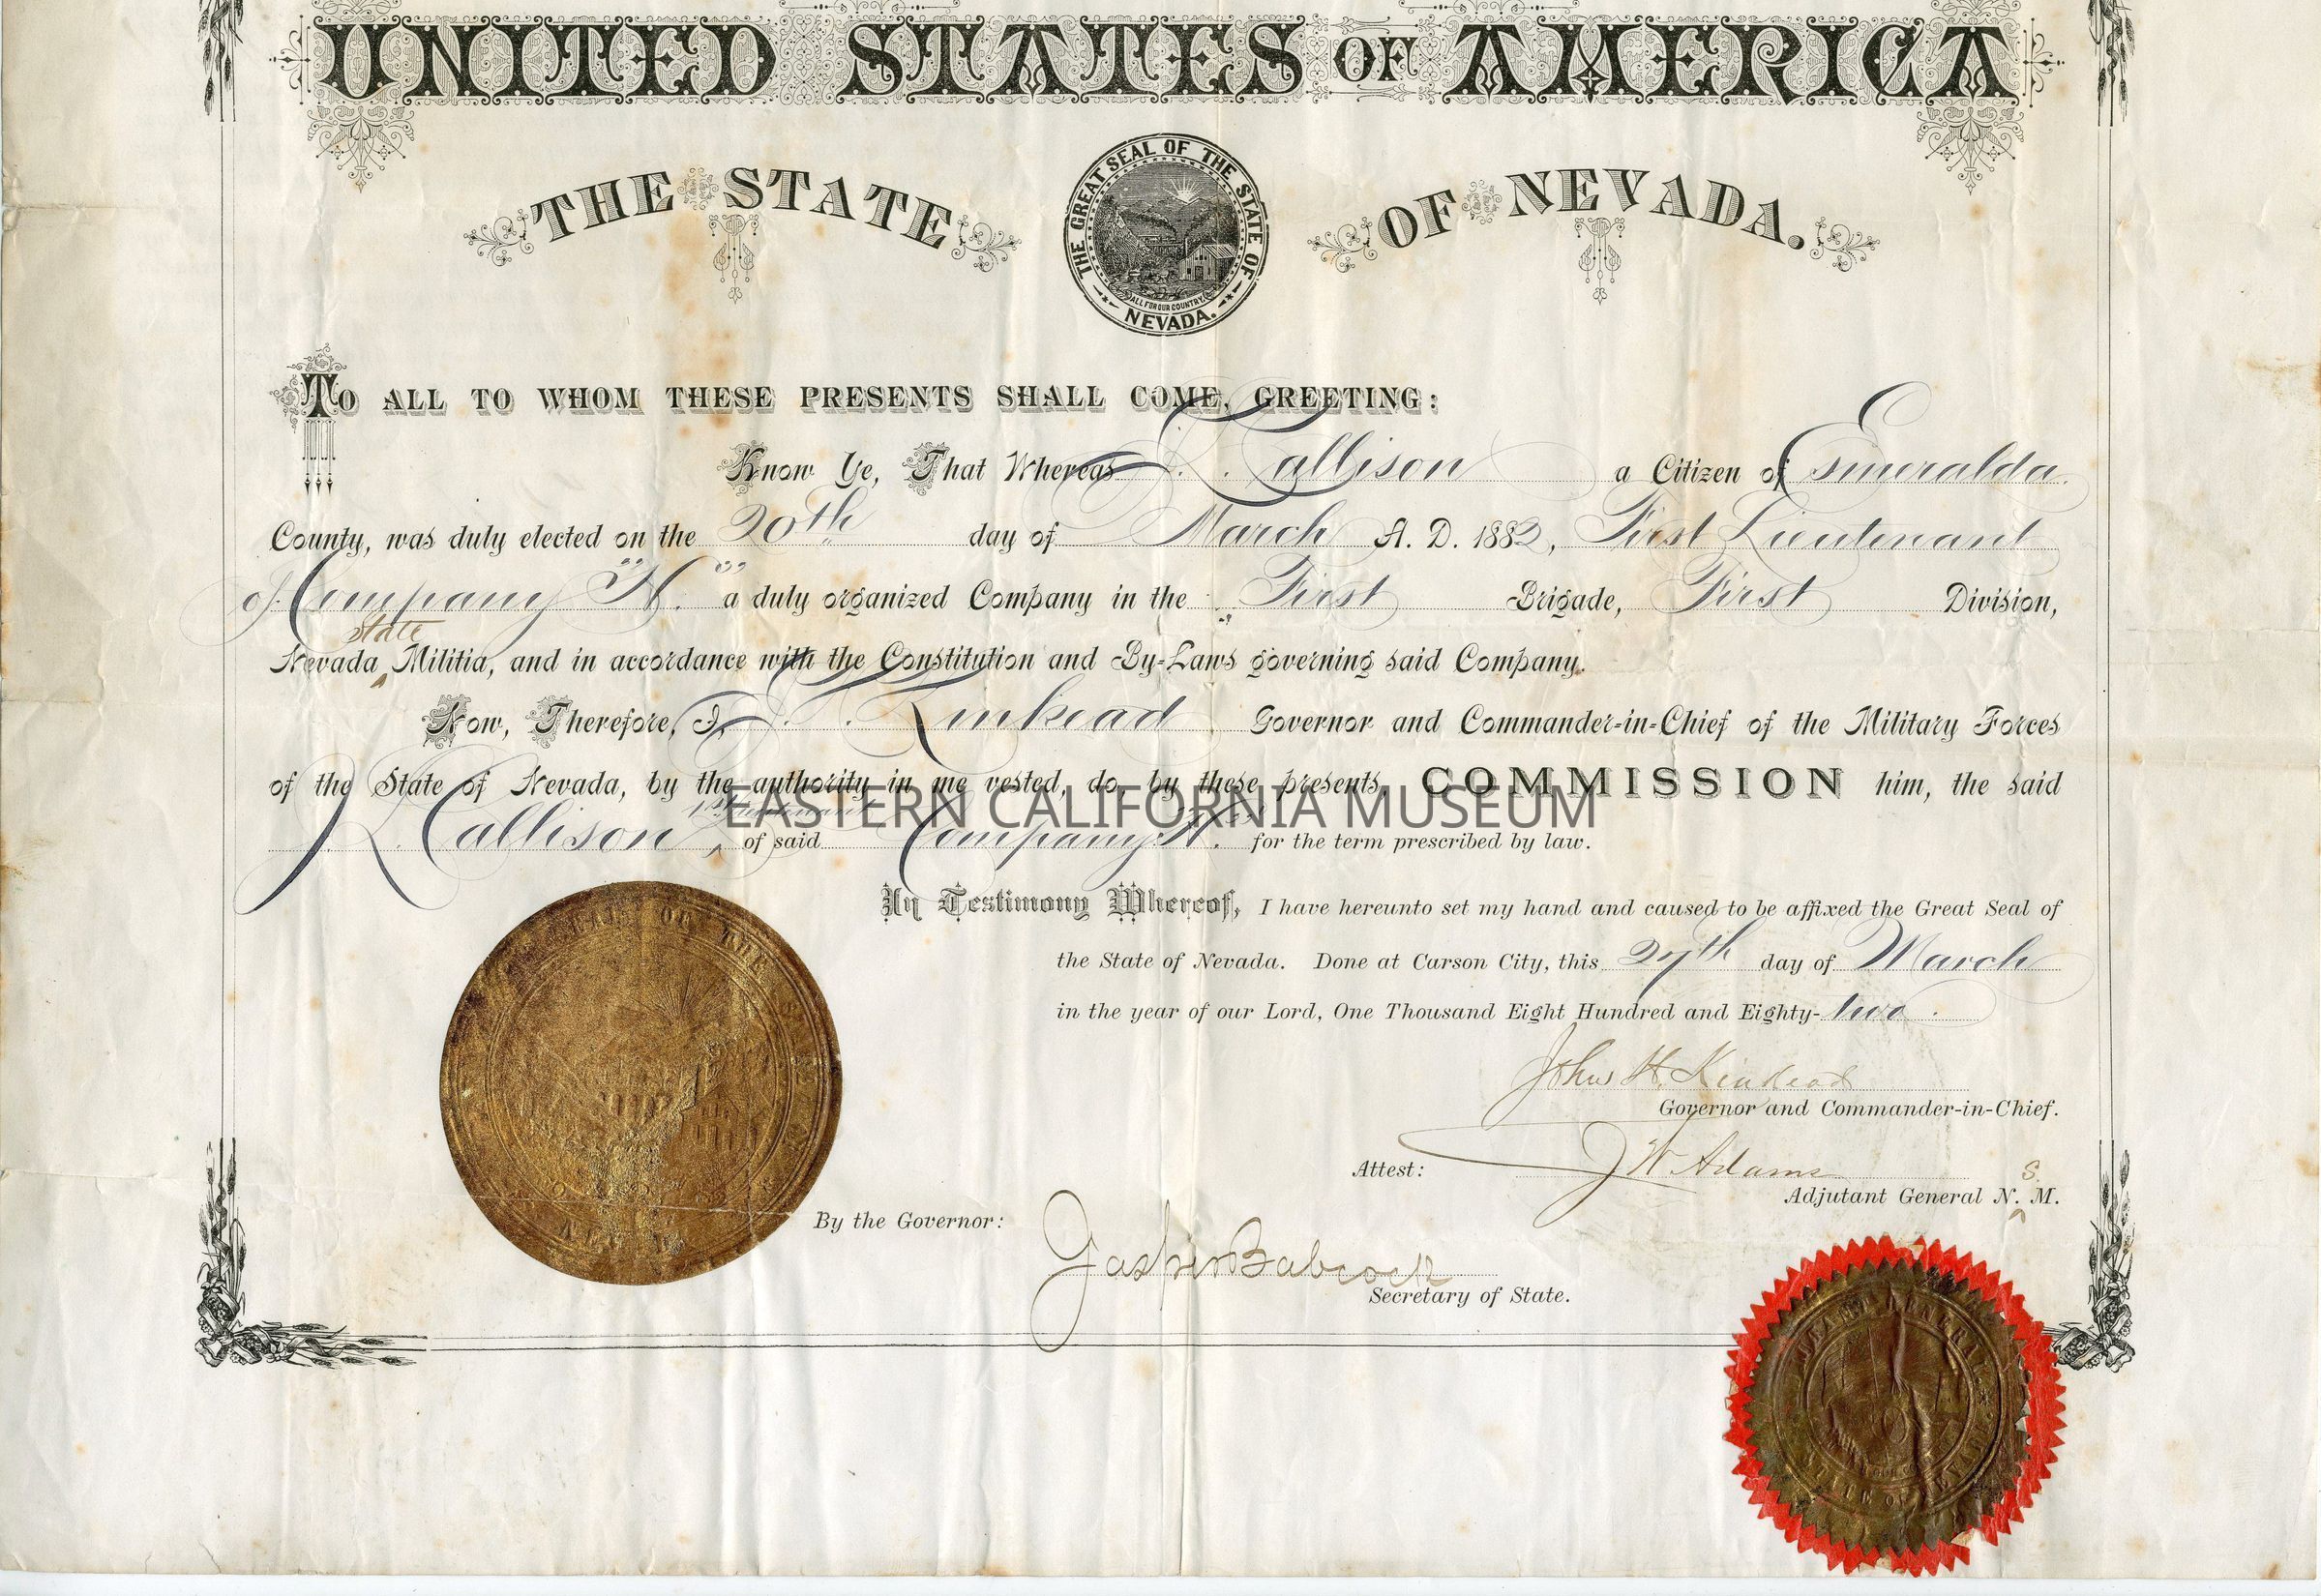 UNITED STATES OF AMERICA
THE STATE OF NEVADA.
THE GREAT SEAL OF THE STATE OF NEVADA.
ALL FOR OUR COUNTRY
TO ALL TO WHOM THESE PRESENTS SHALL COME, GREETING:
Know Ye, That Whereas J. L. Callison a Citizen of Esmeralda
County, was duly elected on the 20th day of March A. D. 1882, First Lieutenant
of Company "H." a duly organized Company in the First Brigade, First Division,
Nevada State Militia, and in accordance with the Constitution and By-Laws governing said Company.
Now, Therefore, I, J. H. Kinkead Governor and Commander-in-Chief of the Military Forces
of the State of Nevada, by the authority in me vested, do, by these presents, COMMISSION him, the said
J L. Callison 1st Lieutenant of said Company "H." for the term prescribed by law.
EASTERN CALIFORNIA MUSEUM
In Testimony Whereof, I have hereunto set my hand and caused to be affixed the Great Seal of
the State of Nevada. Done at Carson City, this 27th day of March
in the year of our Lord, One Thousand Eight Hundred and Eighty-two.
John H. Kinkead
Governor and Commander-in-Chief.
Attest: J W. Adams
Adjutant General N. S. M.
By the Governor:
Jasper Babcock
Secretary of State.